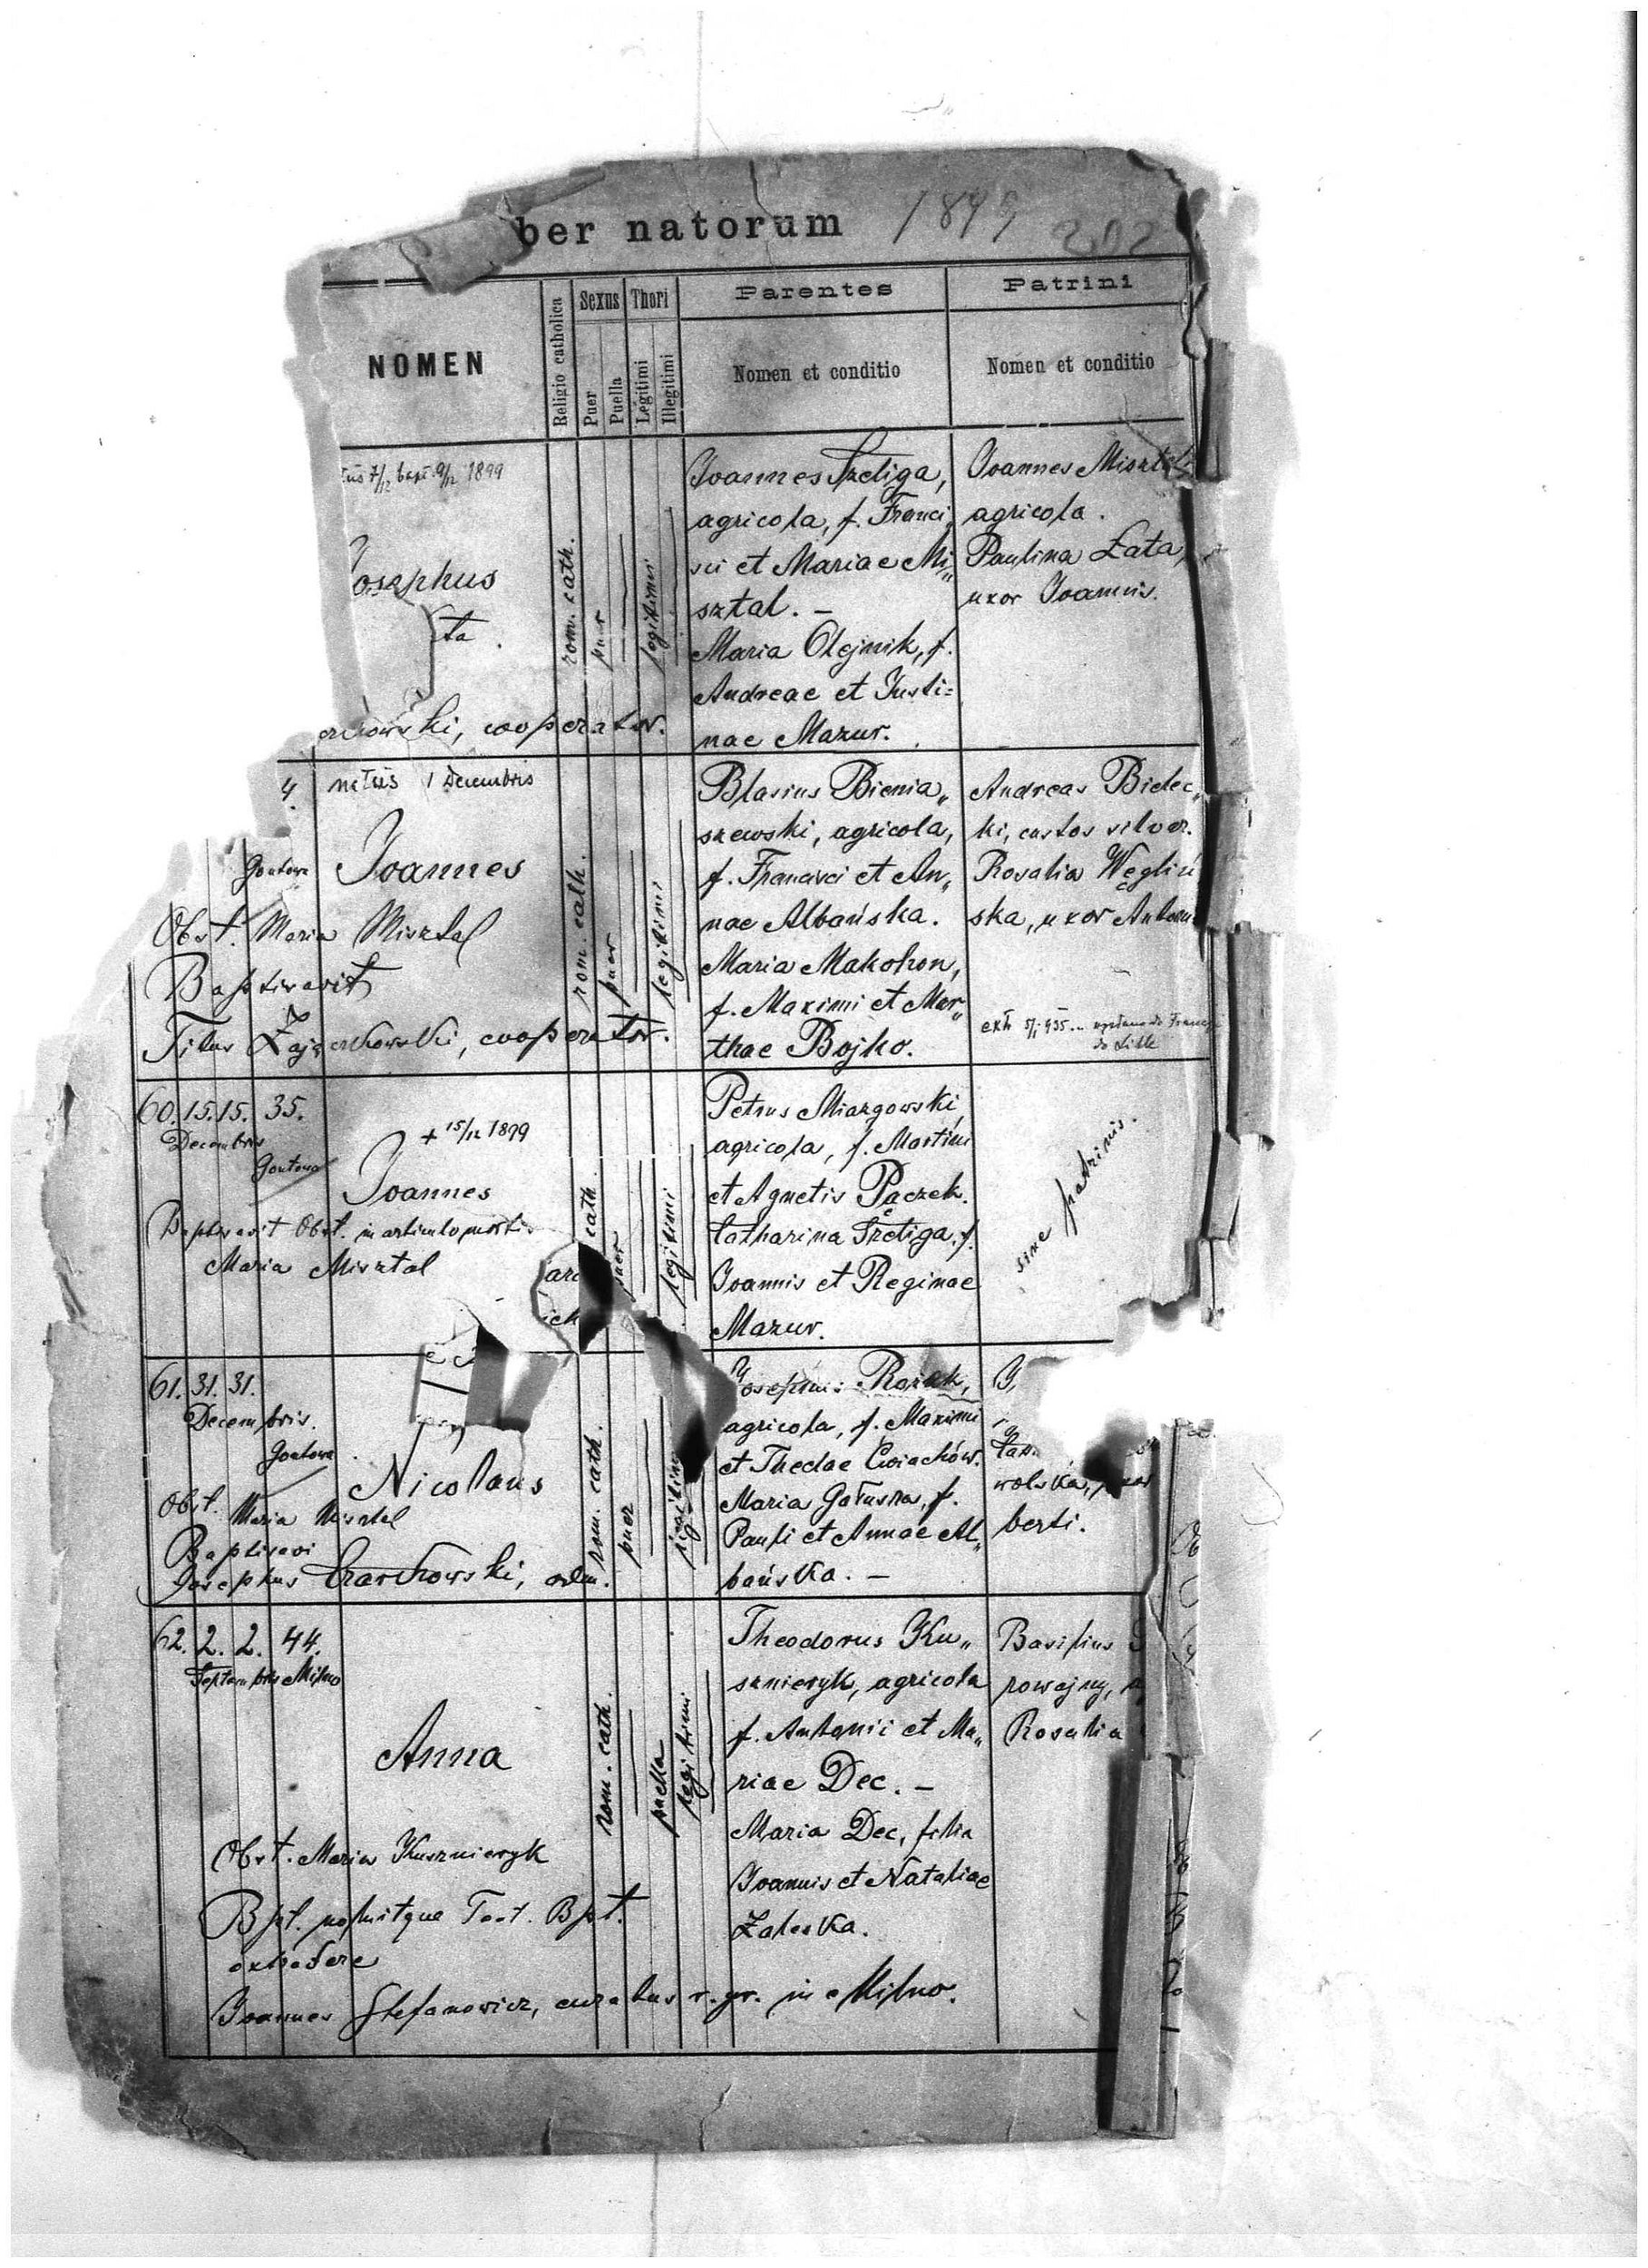 ber natorum 1899 202
NOMEN
Religio catholica
Sexus
Puer
Puella
Thori
Legitimi
Illegitimi
Parentes
Nomen et conditio
Patrini
Nomen et conditio
7/12 bapt. 9/12 1899
Josephus
ta.
rom. cath.
puer
legitimi
Joannes Szeliga,
agricola, f. Franci„
sci et Mariae Mi„
sztal. –
Maria Olejnik, f.
Andreae et Justi=
nae Mazur.
Joannes Misztal
agricola.
Paulina Łata,
uxor Joannis.
owski, cooperator.
4. natus 1 Decembris
Gontowa
Joannes
Obst. Maria Misztal
Baptisavit
Titus Zajączkowski, cooperator.
rom. cath.
puer
legitimi
Blasius Bienia„
szewski, agricola,
f. Francisci et An„
nae Albańska.
Maria Makohon,
f. Maximi et Mar„
thae Bojko.
Andreas Bielec„
ki, custos silvar.
Rosalia Węgliń
ska, uxor Antoni
do Lille
60. 15. 15. 35.
Decembris
Gontowa
+ 15/12 1899
Joannes
Baptisavit Obst. in articulo mortis
Maria Misztal
cath.
puer
legitimi
Petrus Miazgowski,
agricola, f. Martini
et Agnetis Pączek.
Catharina Szeliga, f.
Joannis et Reginae
Mazur.
sine patrinis.
61. 31. 31.
Decembris.
Gontowa
Nicolaus
Obst. Maria Misztal
Baptisavi
Josephus Czarkowski, adm.
rom. cath.
puer
legitimi
Josephus Rozak,
agricola, f. Maximi
et Theclae Ćwiachów.
Maria Gałuszka, f.
Pauli et Annae Al„
bańska. –
wolska, uxor
berti.
62. 2. 2. 44.
Septembris Milno
Anna
Obst. Maria Kusznieryk
Bpt. noluitque Test. Bpt.
extradere
Joannes Stefanowicz, curatus r. gr. in Milno.
rom. cath.
puella
legitimi
Theodorus Ku„
sznieryk, agricola
f. Antonii et Ma„
riae Dec. –
Maria Dec, filia
Joannis et Nataliae
Zaleska.
Basilius
rowajny,
Rosalia